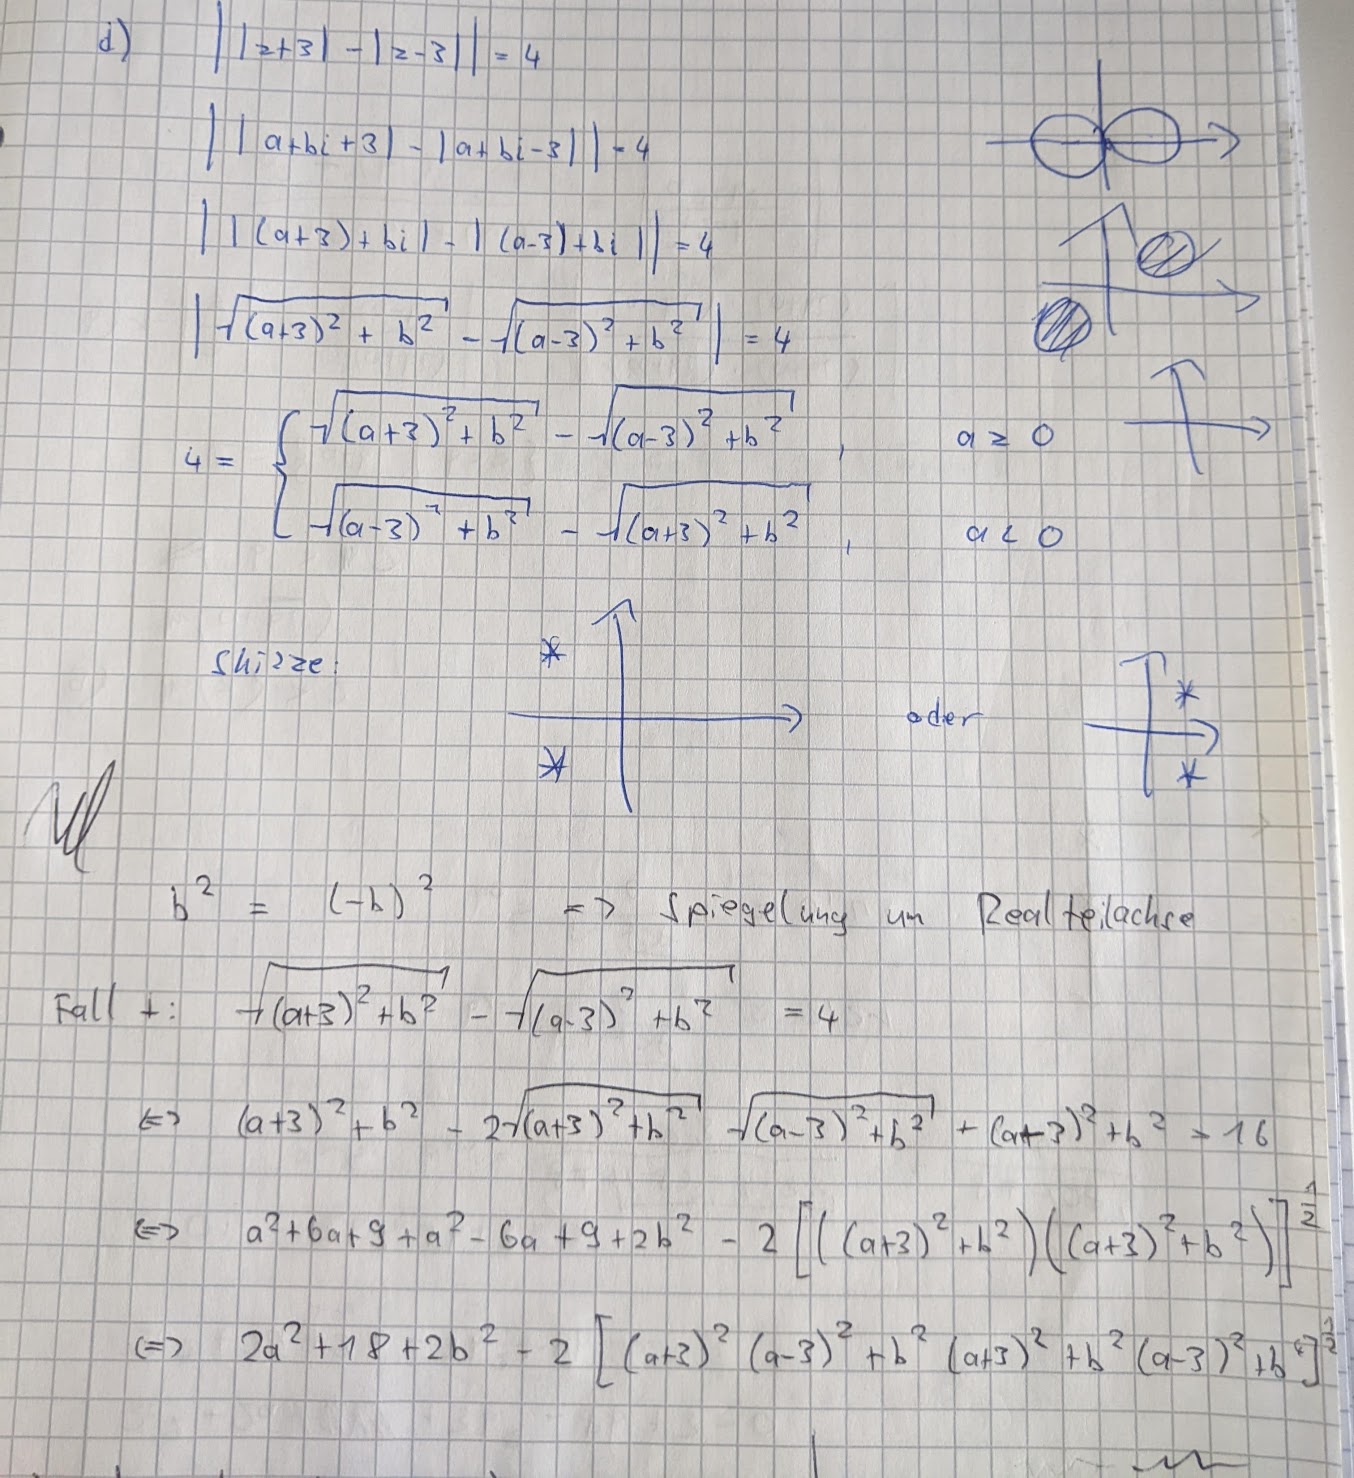 d) ||z+3| - |z-3|| = 4
||a+bi+3| - |a+bi-3|| = 4
||(a+3)+bi| - |(a-3)+bi|| = 4
|√((a+3)² + b²) - √((a-3)² + b²)| = 4
4 = { √((a+3)² + b²) - √((a-3)² + b²) , a ≥ 0
√((a-3)² + b²) - √((a+3)² + b²) , a < 0
Skizze: oder
b² = (-b)² => Spiegelung um Realteilachse
Fall +: √((a+3)² + b²) - √((a-3)² + b²) = 4
<=> (a+3)² + b² - 2√((a+3)² + b²) √((a-3)² + b²) + (a-3)² + b² = 16
<=> a² + 6a + 9 + a² - 6a + 9 + 2b² - 2[((a+3)² + b²)((a+3)² + b²)]^(1/2)
<=> 2a² + 18 + 2b² - 2[(a+3)² (a-3)² + b² (a+3)² + b² (a-3)² + b⁴]^(1/2)